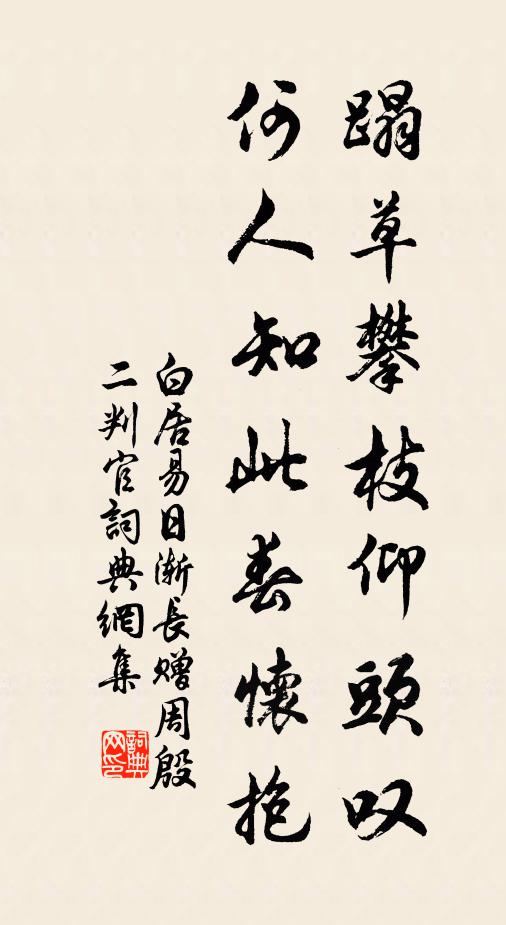 蹋草攀枝仰頭叹
何人知此春懷抱
白居易日渐長赠周殷
二判官詞典網集
詞典
网印